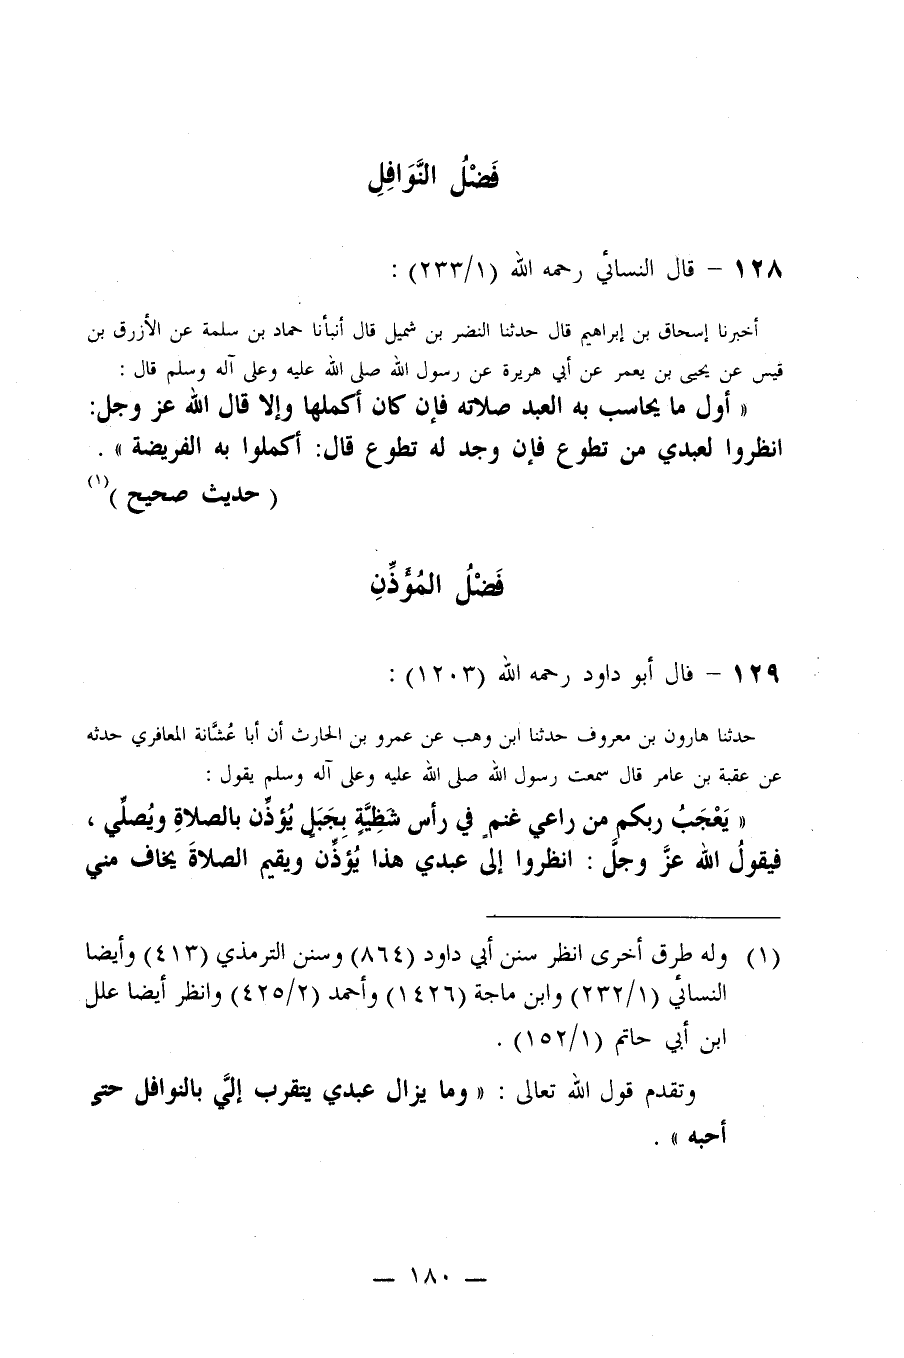 فَضْلُ النَّوَافِلِ
١٢٨ – قال النسائي رحمه الله (٢٣٣/١) :
أخبرنا إسحاق بن إبراهيم قال حدثنا النضر بن شميل قال أنبأنا حماد بن سلمة عن الأزرق بن
قيس عن يحيى بن يعمر عن أبي هريرة عن رسول الله صلى الله عليه وعلى آله وسلم قال :
« أول ما يحاسب به العبد صلاته فإن كان أكملها وإلا قال الله عز وجل:
انظروا لعبدي من تطوع فإن وجد له تطوع قال: أكملوا به الفريضة » .
( حديث صحيح )(١)
فَضْلُ المُؤَذِّنِ
١٢٩ – قال أبو داود رحمه الله (١٢٠٣) :
حدثنا هارون بن معروف حدثنا ابن وهب عن عمرو بن الحارث أن أبا عُشَّانة المعافري حدثه
عن عقبة بن عامر قال سمعت رسول الله صلى الله عليه وعلى آله وسلم يقول :
« يَعْجَبُ ربكم من راعي غنمٍ في رأس شَظِيَّةٍ بِجَبَلٍ يُؤذِّن بالصلاةِ ويُصلِّي ،
فيقولُ الله عزَّ وجلَّ : انظروا إلى عبدي هذا يُؤذِّن ويقيم الصلاةَ يخاف مني
(١) وله طرق أخرى انظر سنن أبي داود (٨٦٤) وسنن الترمذي (٤١٣) وأيضا
النسائي (٢٣٢/١) وابن ماجة (١٤٢٦) وأحمد (٤٢٥/٢) وانظر أيضا علل
ابن أبي حاتم (١٥٢/١) .
وتقدم قول الله تعالى : « وما يزال عبدي يتقرب إليَّ بالنوافل حتى
أحبه » .
— ١٨٠ —